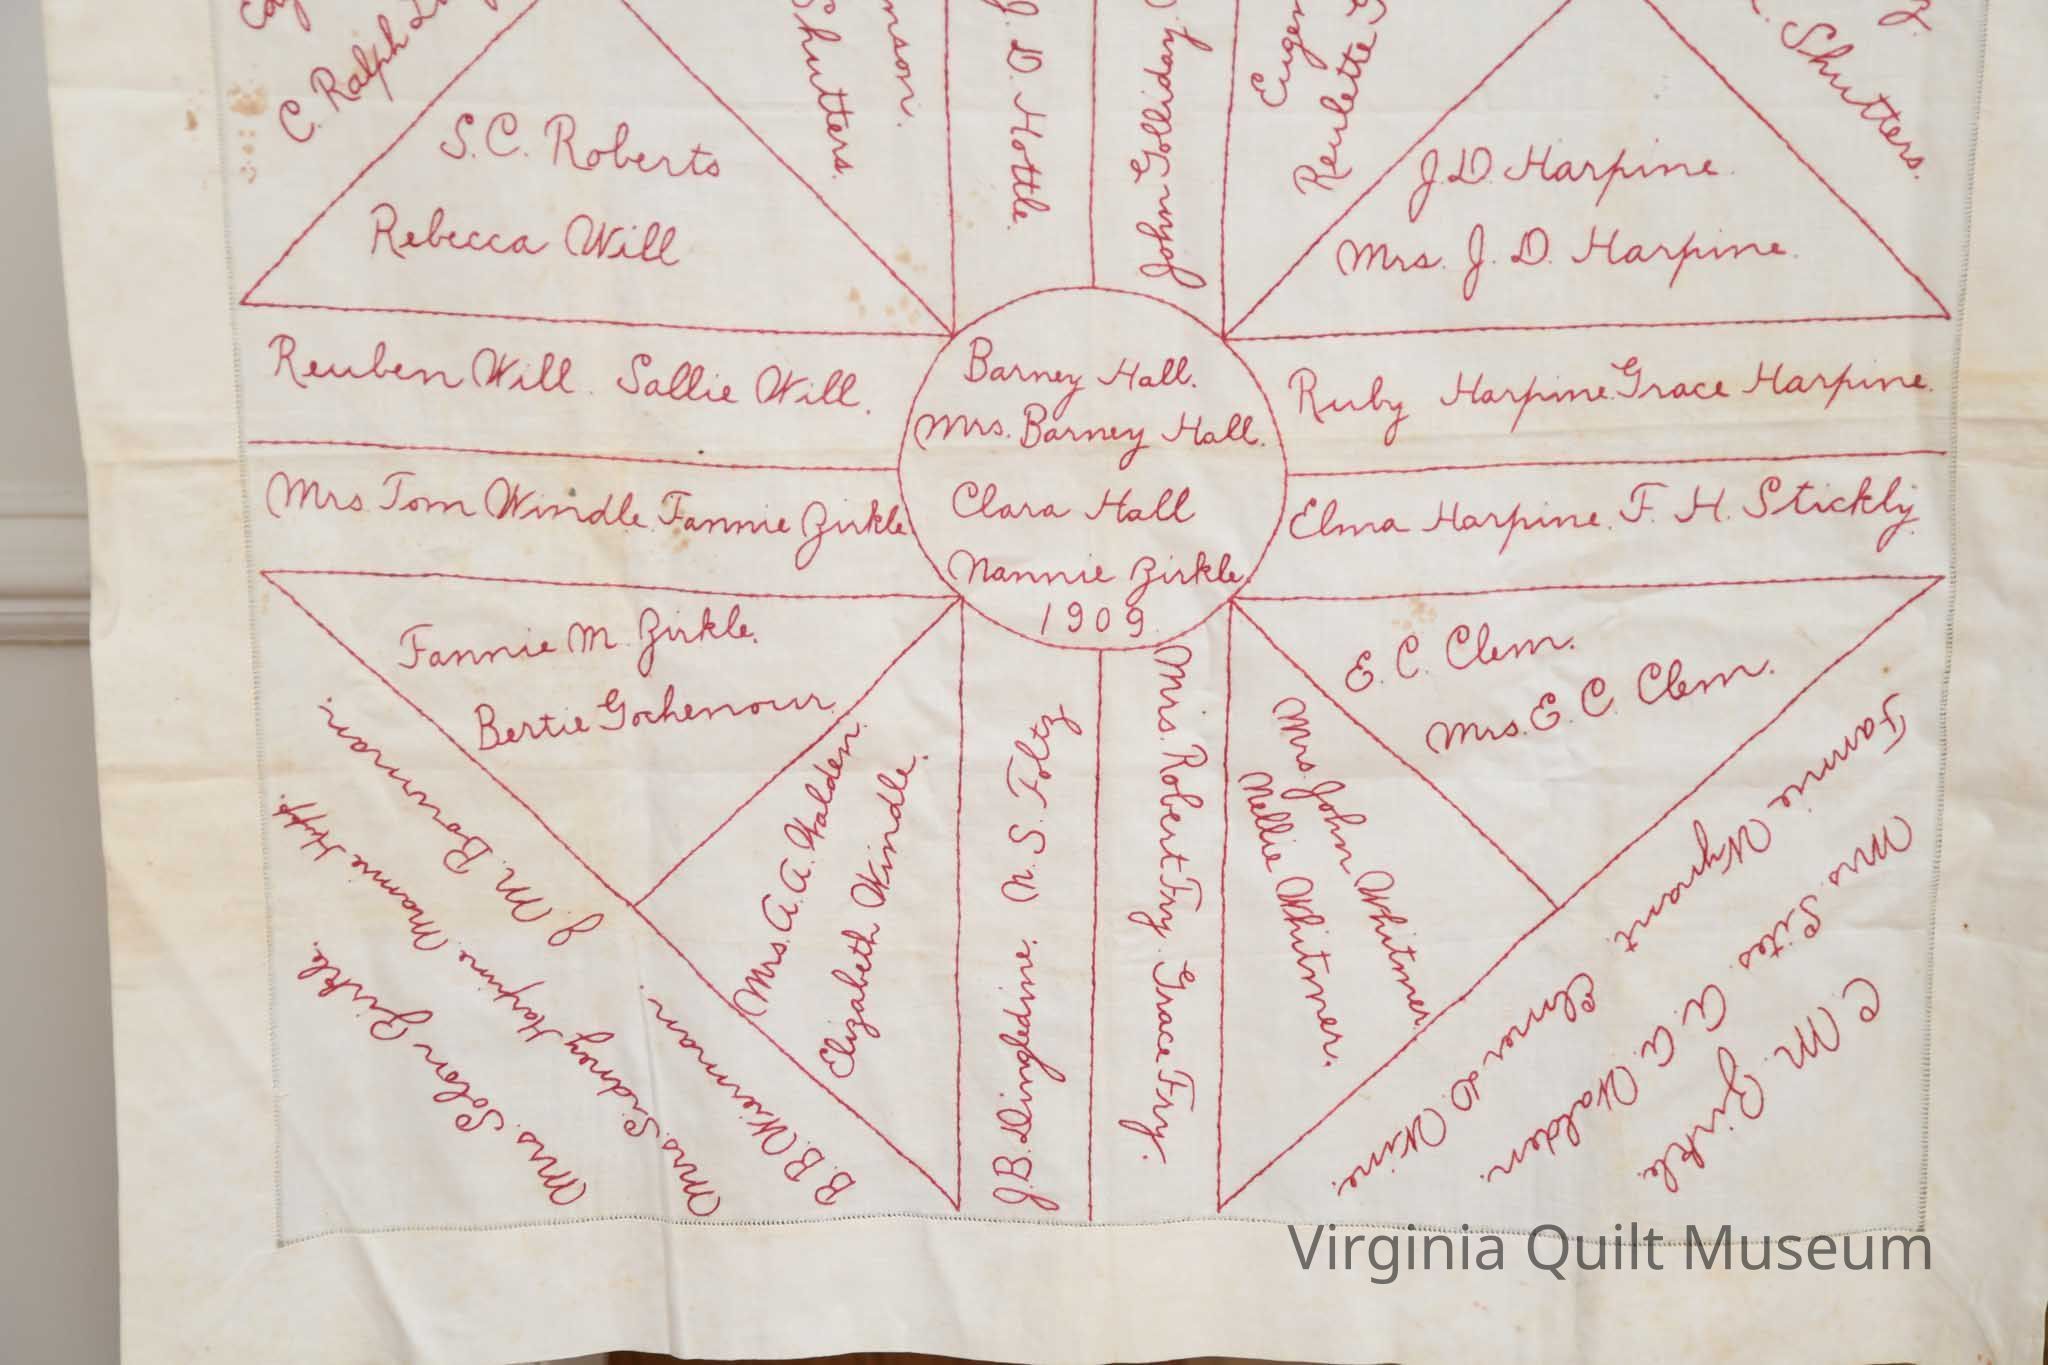 C. Ralph
Shutters.
J. D. Hottle.
John Golliday.
Reulette
Shutters.
S. C. Roberts
Rebecca Will
J. D. Harpine.
Mrs. J. D. Harpine.
Reuben Will. Sallie Will.
Barney Hall.
Mrs. Barney Hall.
Clara Hall
Nannie Zirkle.
1909.
Ruby Harpine. Grace Harpine.
Mrs Tom Windle. Fannie Zirkle.
Elma Harpine. F. H. Stickly.
Fannie M. Zirkle.
Bertie Gochenour.
E. C. Clem.
Mrs. E. C. Clem.
J. M. Bowman.
Mrs. Sidney Harpine. Mamie Hepp.
Mrs. Solon Zirkle.
B. B. Wierman.
Mrs. A. A. Walden.
Elizabeth Windle.
J. B. Dingledine. N. S. Foltz
Mrs. Robert Fry. Grace Fry.
Mrs. John Whitmer.
Nellie Whitmer.
Fannie Wynant.
Elmer D. Wine.
Mrs. Sites. A. A. Walden.
C. M. Zirkle.
Virginia Quilt Museum